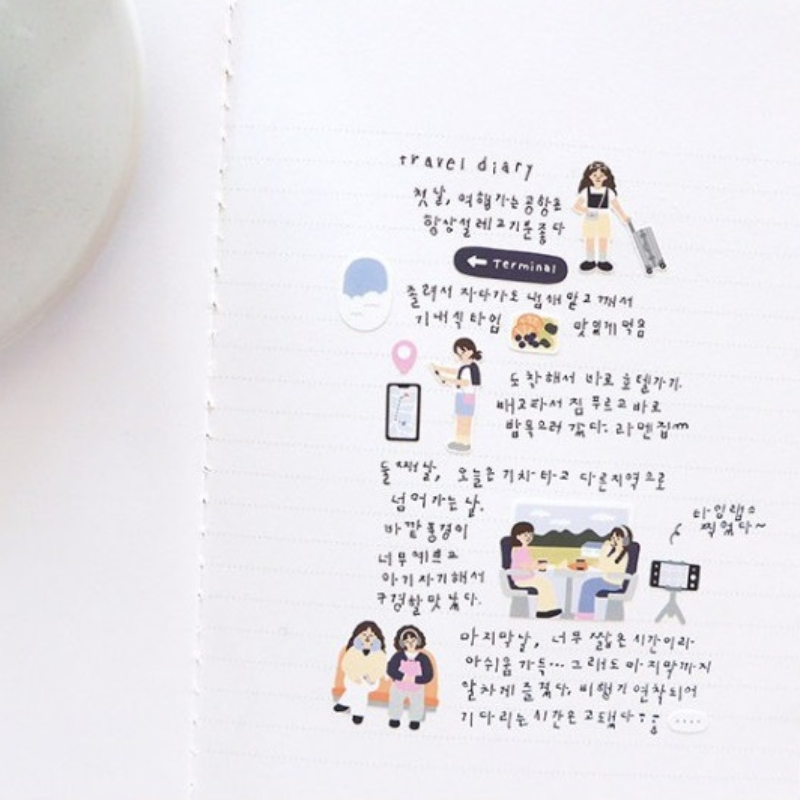 travel diary
첫 날, 여행가는 공항은
항상 설레고 기분좋다
← Terminal
졸려서 자다가도 냄새맡고 깨서
기내식타임 맛있게 먹음
도착해서 바로 호텔가기.
배고파서 짐 푸르고 바로
밥 먹으러 갔다. 라멘집
둘째날, 오늘은 기차타고 다른지역으로
넘어가는 날.
바깥 풍경이
너무 예쁘고
아기자기해서
구경할 맛 났다.
타임랩스
찍었다~
마지막날, 너무 짧은 시간이라
아쉬움 가득... 그래도 마지막까지
알차게 즐겼다. 비행기 연착되어
기다리는 시간은 고됐다
....